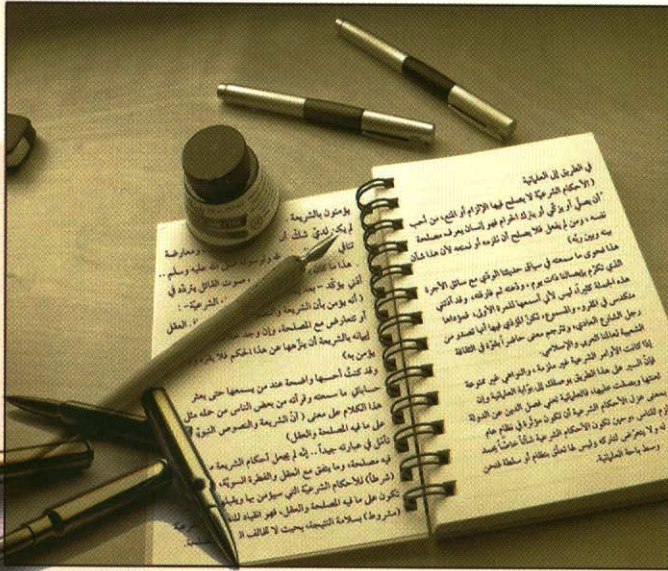 في الطريق إلى العلمانية
(الأحكام الشرعيّة لا يصلح فيها الإلزام أو المنع، من أحب
أن يصلّي أو يزكّي أو يترك الحرام فهو إنسان يعرف مصلحة
نفسه، ومن لم يفعل فلا يصلح أن نلزمه أو نمنعه لأن هذا شأن
بينه وبين ربّه)
هذا فحوى ما سمعته في سياق حديثنا الودّي مع سائق الأجرة
الذي تكرّم بإيصالنا ذات يوم، ودّعته ثم فارقته، وقد آذتني
هذه الجملة كثيرة ليس لأني أسمعها للمرة الأولى، فمؤدّاها
متكدّس في المقروء والمسموع، لكنّ المؤذي فيها أنها تصدر من
رجل الشارع العادي، وتترجم معنى حاضر بغزارة في الثقافة
الشعبية لعالمنا العربي والإسلامي.
إذا كانت الأوامر الشرعية غير ملزمة، والنواهي غير ممنوعة
فإنّ السير على هذا الطريق يوصلك إلى بوّابة العلمانية وإن
لعنتها وبصقت عليها، فالعلمانية تعني فصل الدين عن الدولة
بمعنى عزل الأحكام الشرعية أن تكون مؤثرة في نظام عام
للناس وحين تكون الأحكام الشرعية شأنًا خاصًّا يحمد
له ولا يتعرّض لتاركه وليس لها تعلّق بنظام أو سلطة فنحن
وسط باحة العلمانية.
يؤمنون بالشريعة
لم يكن لديّ شكّ أن ومعارضة
تنافي ولرسوله صلى الله عليه وسلم ..
هذا ما قاله صوت القائل يتردّد في
أذني يؤكّد - الشرعيّة - :
(أنه يؤمن بأن الشريعة العقل
أو تتعارض مع المصلحة، وإن وجد
إيمانه بالشريعة أن ينزّهها عن هذا الحكم فلا
يؤمن به)
وقد كنتُ أحسبها واضحة عند من يسمعها حتى بعثر
حساباتي ما سمعته وقرأته من بعض الناس من حوله مثل
هذا الكلام على معنى (أنّ الشريعة والنصوص النبويّة
على ما فيه المصلحة والعقل)
تأمّل في عبارته جيداً .. إنّه لم يجعل أحكام الشريعة
فيه مصلحة، وما يتفق مع العقل والفطرة السويّة،
(شرطاً) للأحكام الشرعيّة التي سيؤمن بها
تكون على ما فيه المصلحة والعقل، فهو انقياد
(مشروط) بسلامة النتيجة، بحيث لا تخالف